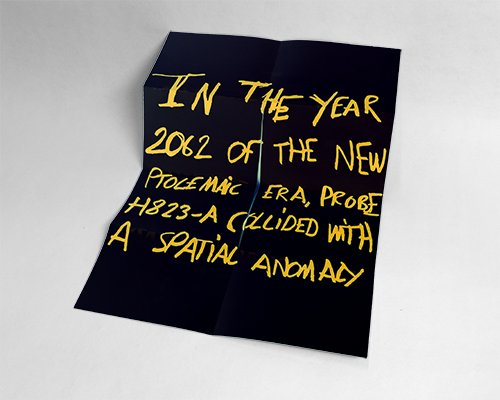 IN THE YEAR
2062 OF THE NEW
PTOLEMAIC ERA, PROBE
H823-A COLLIDED WITH
A SPATIAL ANOMALY